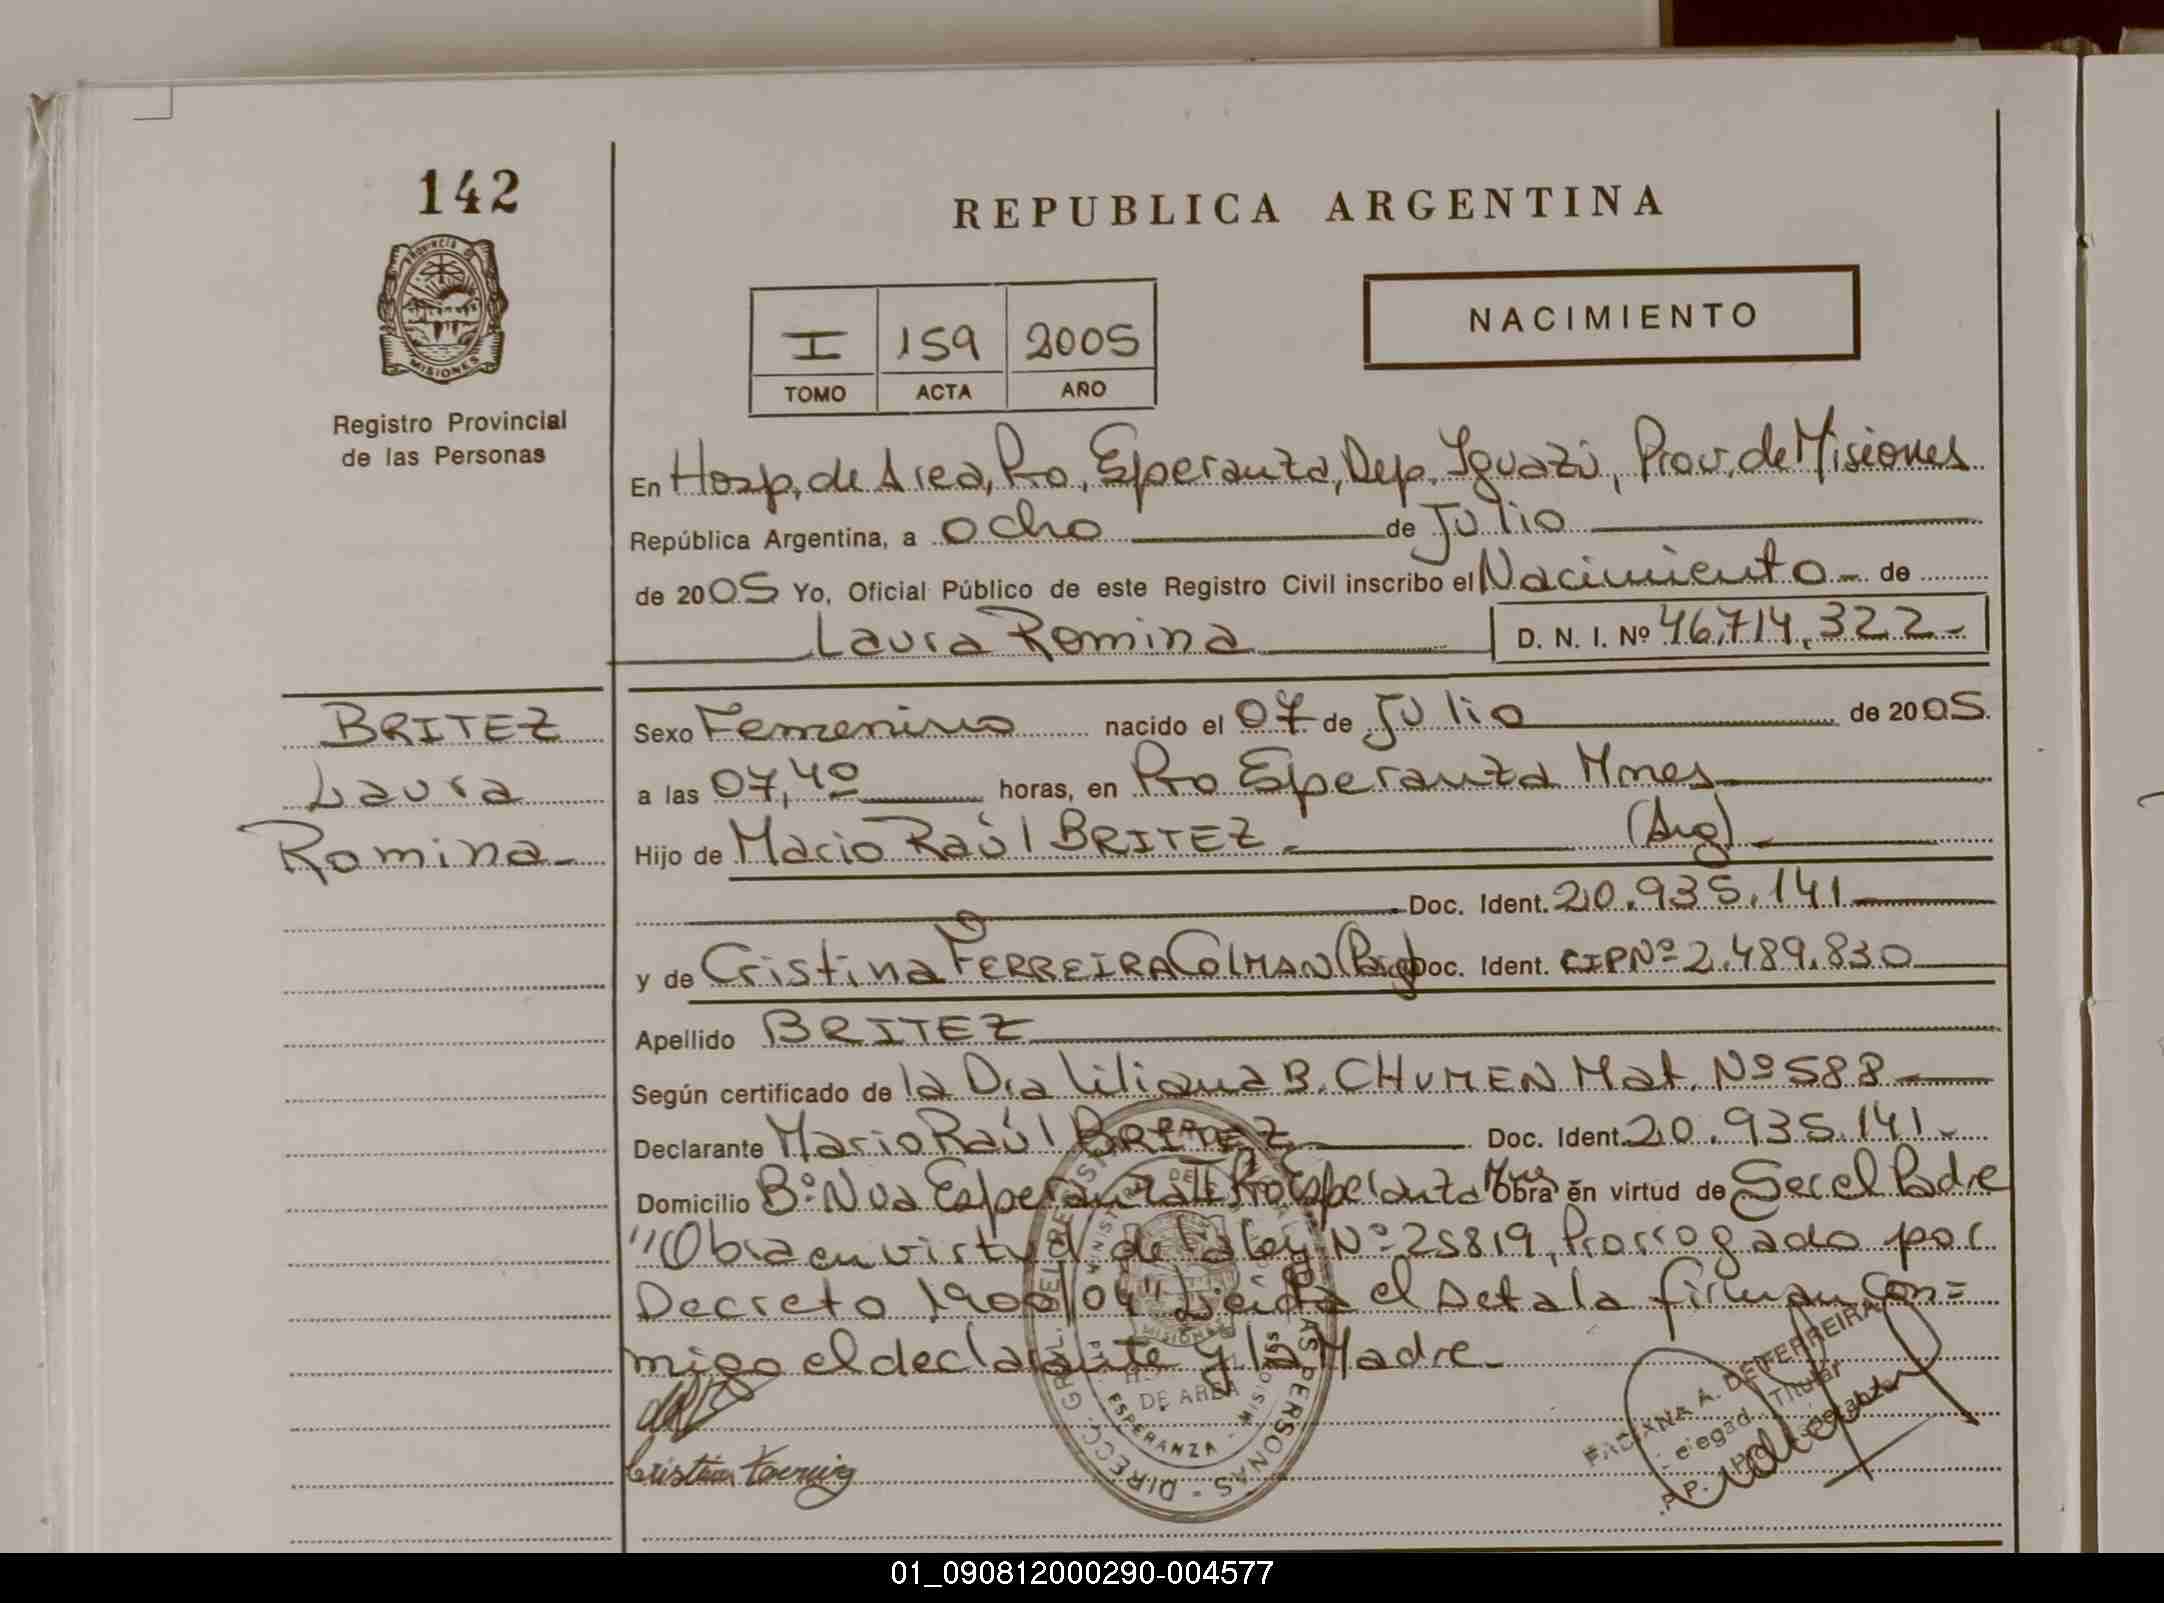 142
PROVINCIA DE
MISIONES
Registro Provincial
de las Personas
REPUBLICA ARGENTINA
I 159 2005
TOMO ACTA AÑO
NACIMIENTO
En Hosp. de Area, Pto. Esperanza, Dep. Iguazú, Prov. de Misiones
República Argentina, a ocho de Julio
de 2005 Yo, Oficial Público de este Registro Civil inscribo el Nacimiento de
Laura Romina D. N. I. Nº 46.714.322-
BRITEZ
Laura
Romina-
Sexo Femenino nacido el 07 de Julio de 2005.
a las 07,40 horas, en Pto Esperanza Mnes
Hijo de Mario Raúl BRITEZ.- (Arg).-
Doc. Ident. 20.935.141
y de Cristina FERREIRA COLMAN (Parg) Doc. Ident. CIP Nº 2.489.830
Apellido BRITEZ
Según certificado de la Dra Liliana B. CHUMEN Mat. Nº 588
Declarante Mario Raúl BRITEZ Doc. Ident. 20.935.141.-
Domicilio Bº Nva Esperanza Pto Esperanza Mnes Obra en virtud de Ser el Padre
"Obra en virtud de la Ley Nº 25819, Prorrogado por
Decreto 1900/04" Leida el Acta la firman con=
migo el declarante y la Madre.-
DIRECC. GRAL. DEL REGISTRO DE LAS PERSONAS
MISIONES
DE AREA
ESPERANZA - MISIONES
FABIANA A. DE FERREIRA
Delegada Titular
R.P.P. Pto. Esperanza
01_090812000290-004577